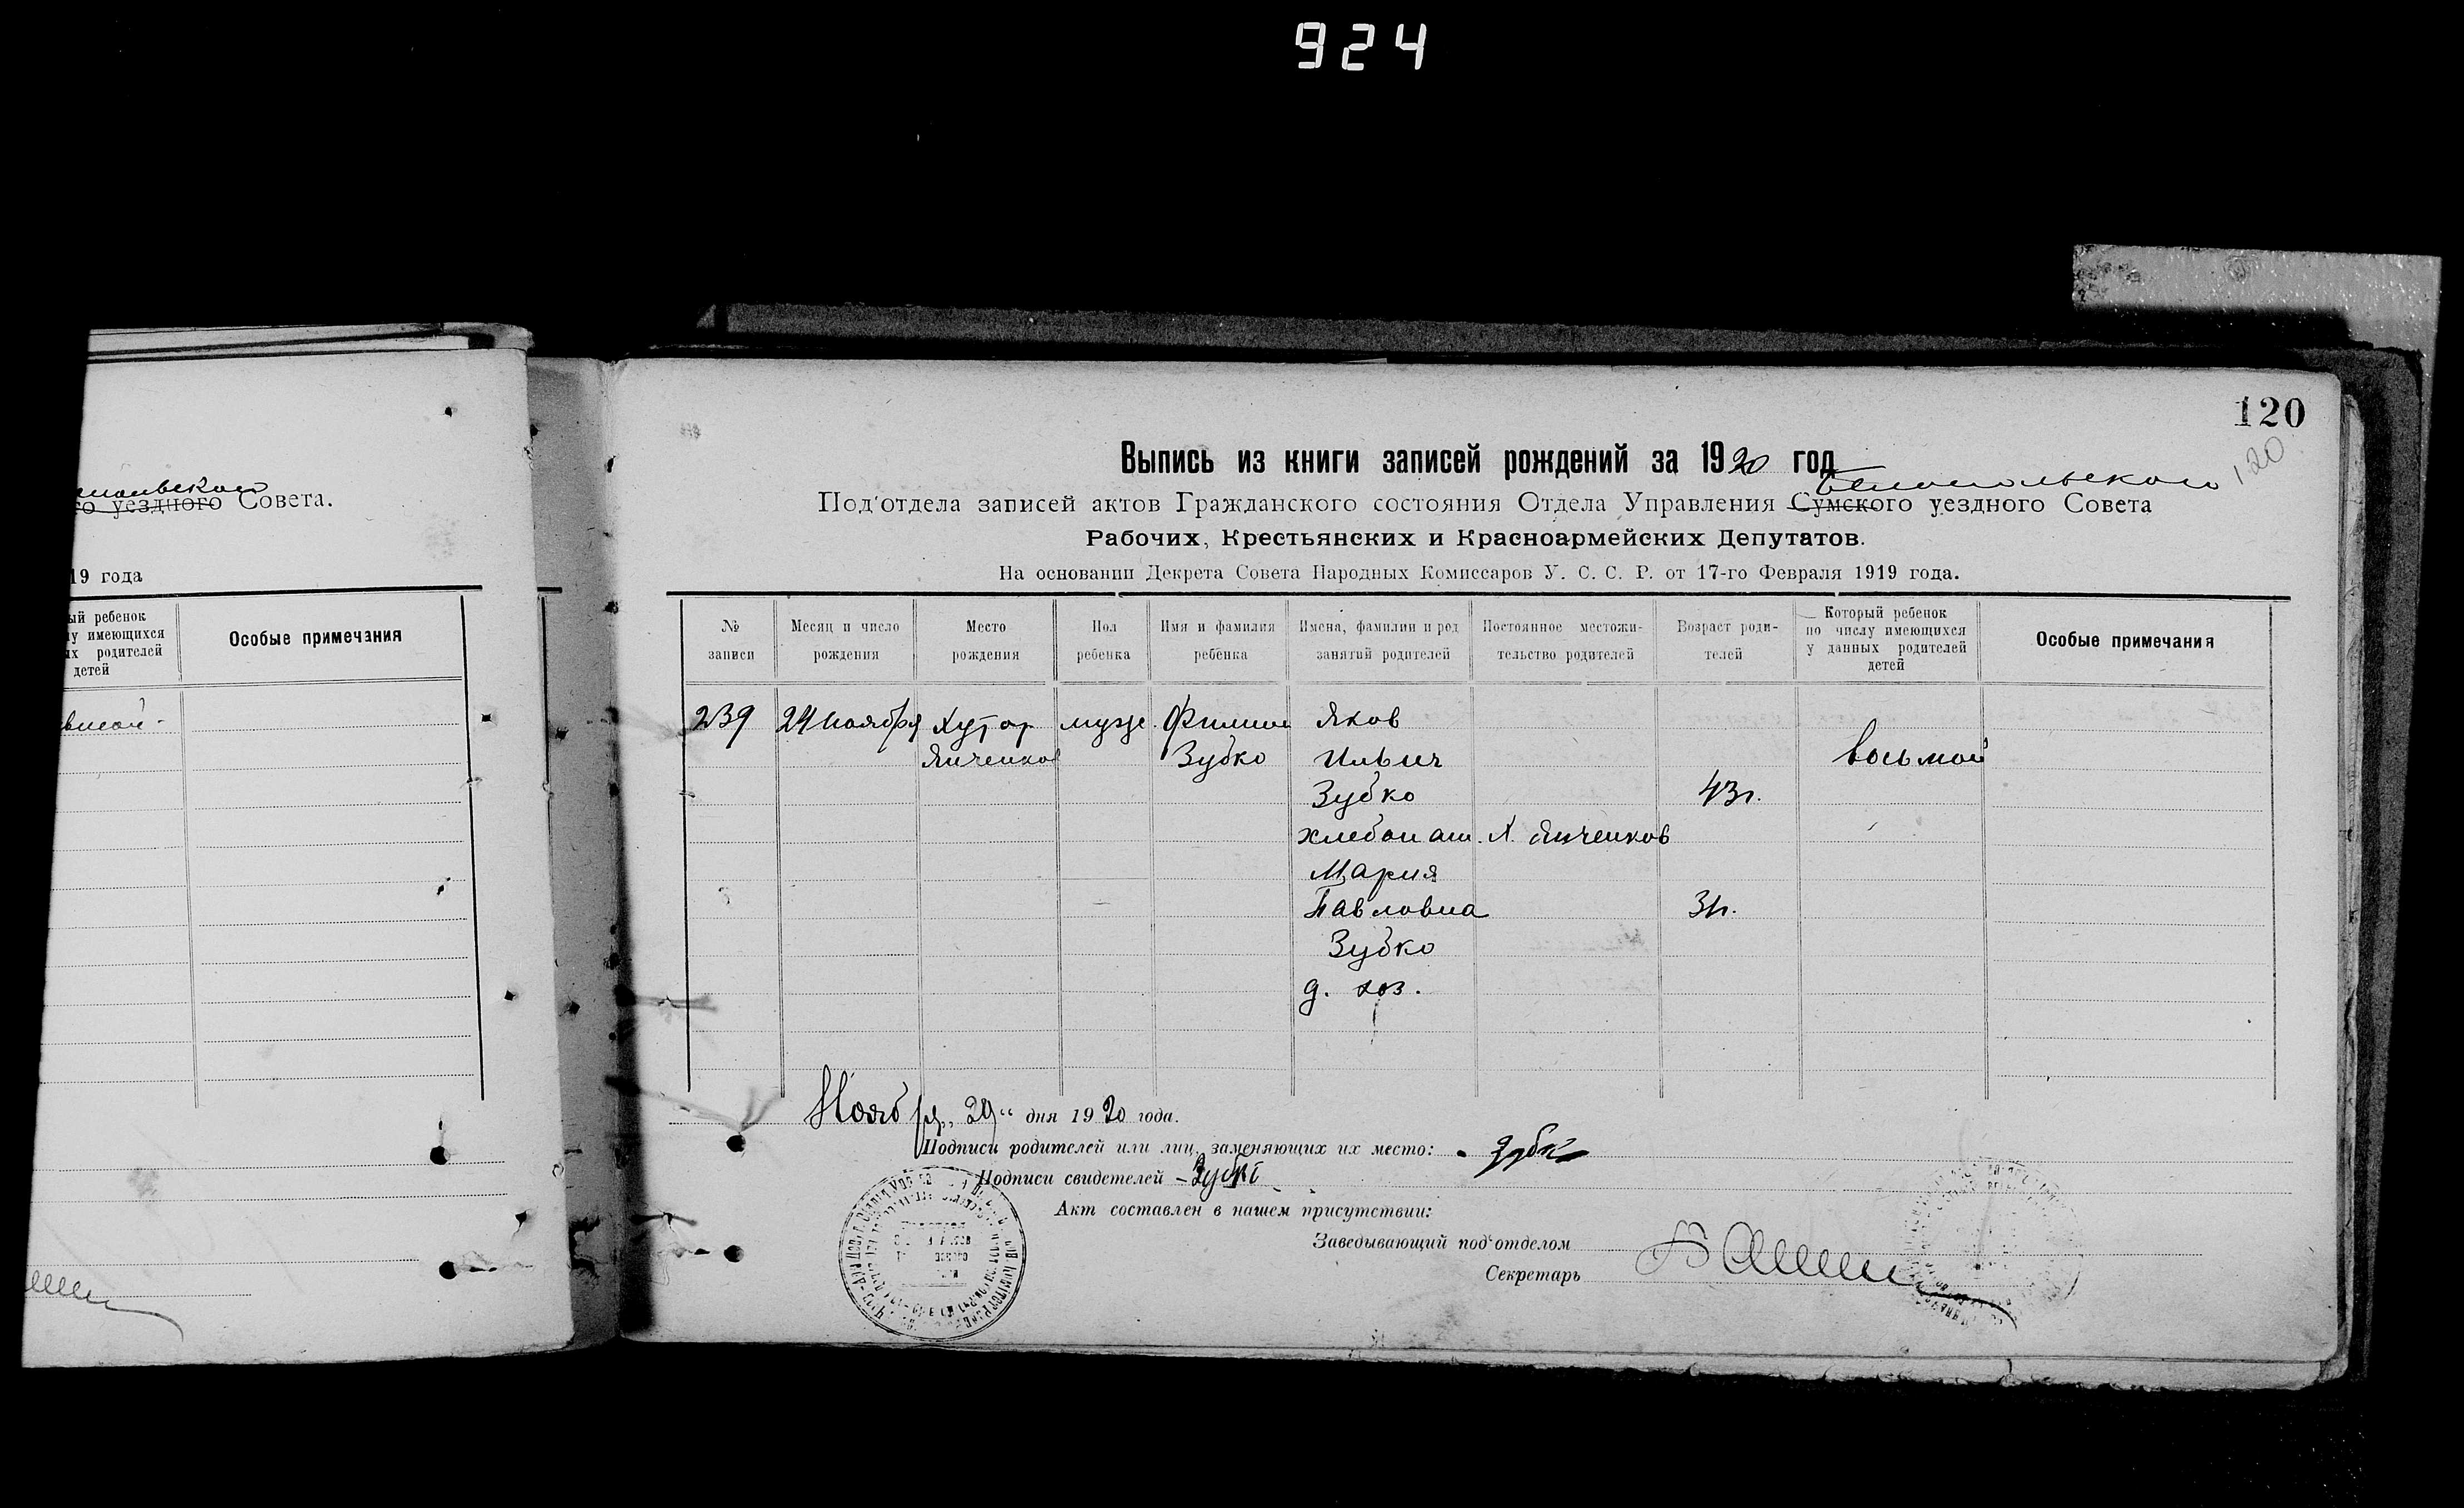 924
120
120
Выпись из книги записей рождений за 1920 год
Белопольского
Под'отдела записей актов Гражданского состояния Отдела Управления Сумского уездного Совета
Рабочих, Крестьянских и Красноармейских Депутатов.
На основании Декрета Совета Народных Комиссаров У. С. С. Р. от 17-го Февраля 1919 года.
го уездного Совета.
19 года
ый ребенок
лу имеющихся
ых родителей
детей
Особые примечания
№ записи
Месяц и число рождения
Место рождения
Пол ребенка
Имя и фамилия ребенка
Имена, фамилии и род занятий родителей
Постоянное местожительство родителей
Возраст родителей
Который ребенок по числу имеющихся у данных родителей детей
Особые примечания
239 24 ноября Хутор мужс. Филип Яков
Янченков Зубко Ильич восьмой
Зубко 43 г.
хлебопаш. Х. Янченков
Мария
Павловна 31 г.
Зубко
д. хоз.
Ноября „29“ дня 1920 года.
Подписи родителей или лиц, заменяющих их место: Зубко
Подписи свидетелей – Зубко
Акт составлен в нашем присутствии:
Заведывающий под'отделом
Секретарь